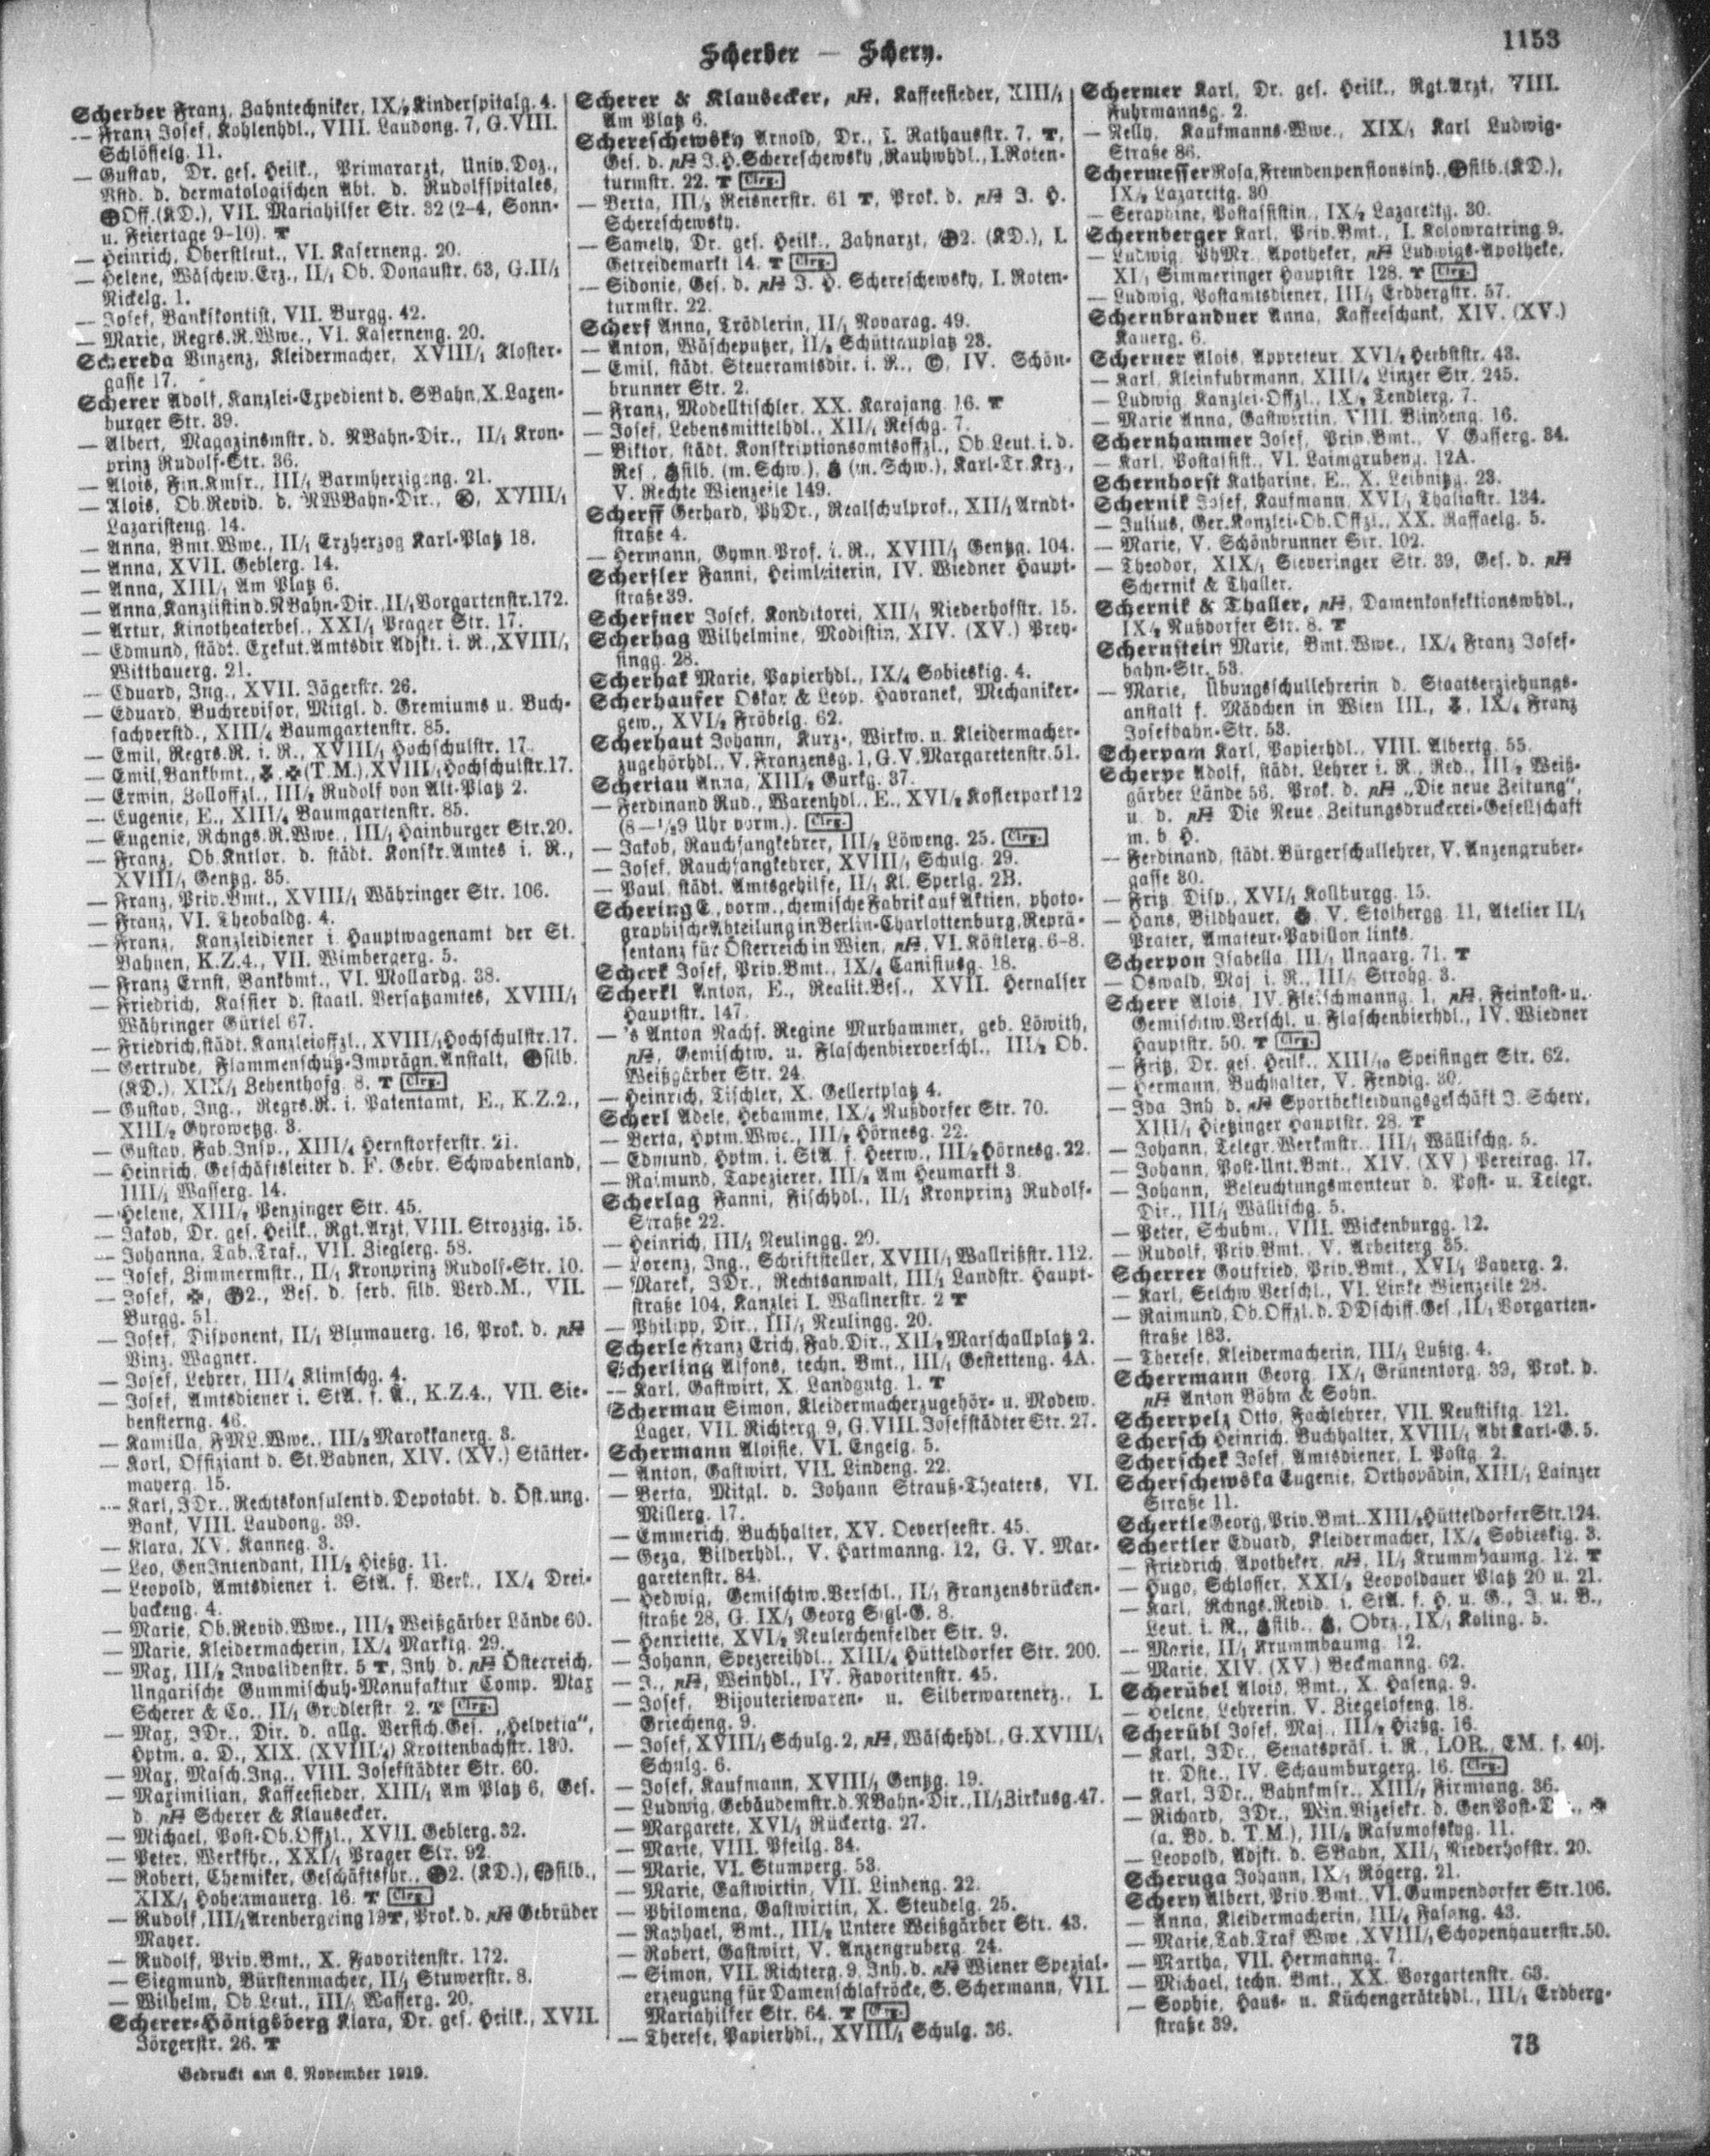 Scherber — Schery.
1153
Scherber Franz, Zahntechniker, IX/2 Kinderspitalg. 4.
— Franz Josef, Kohlenhdl., VIII. Laudong. 7, G. VIII.
Schlösselg. 11.
— Gustav, Dr. ges. Heilk., Primararzt, Univ. Doz.,
Vstd. d. dermatologischen Abt. d. Rudolfspitales,
Off. (KD.), VII. Mariahilfer Str. 32 (2–4, Sonn-
u. Feiertage 9–10). T
— Heinrich, Oberstleut., VI. Kaserneng. 20.
— Helene, Wäschew. Erz., II/1 Ob. Donaustr. 63, G. II/1
Nickelg. 1.
— Josef, Bankkontist, VII. Burgg. 42.
— Marie, Regrs. R. Wwe., VI. Kaserneng. 20.
Schereda Vinzenz, Kleidermacher, XVIII/1 Kloster-
gasse 17.
Scherer Adolf, Kanzlei-Expedient d. SBahn, X. Laxen-
burger Str. 39.
— Albert, Magazinsmstr. d. NBahn-Dir., II/1 Kron-
prinz Rudolf-Str. 36.
— Alois, Fin. Kmsr., III/1 Barmherzigeng. 21.
— Alois, Ob. Revid. d. NWBahn-Dir., XVIII/1
Lazaristeng. 14.
— Anna, Bmt. Wwe., II/1 Erzherzog Karl-Platz 18.
— Anna, XVII. Geblerg. 14.
— Anna, XIII/1 Am Platz 6.
— Anna, Kanzlistin d. NBahn-Dir., II/1 Vorgartenstr. 172.
— Artur, Kinotheaterbes., XXI/1 Prager Str. 17.
— Edmund, städt. Exekut. Amtsdir. Adjkt. i. R., XVIII/1
Witthauerg. 21.
— Eduard, Ing., XVII. Jägerstr. 26.
— Eduard, Buchrevisor, Mitgl. d. Gremiums u. Buch-
sachverstd., XIII/4 Baumgartenstr. 85.
— Emil, Regrs. R. i. R., XVIII/1 Hochschulstr. 17.
— Emil, Bankbmt., (T. M.), XVIII/1 Hochschulstr. 17.
— Erwin, Zolloffzl., III/2 Rudolf von Alt-Platz 2.
— Eugenie, E., XIII/4 Baumgartenstr. 85.
— Eugenie, Rchngs. R. Wwe., III/1 Hainburger Str. 20.
— Franz, Ob. Kntlor. d. städt. Konskr. Amtes i. R.,
XVIII/1 Gentzg. 35.
— Franz, Priv. Bmt., XVIII/1 Währinger Str. 106.
— Franz, VI. Theobaldg. 4.
— Franz, Kanzleidiener i. Hauptwagenamt der St.
Bahnen, K. Z. 4., VII. Wimbergerg. 5.
— Franz Ernst, Bankbmt., VI. Mollardg. 38.
— Friedrich, Kassier d. staatl. Versatzamtes, XVIII/1
Währinger Gürtel 67.
— Friedrich, städt. Kanzleioffzl., XVIII/1 Hochschulstr. 17.
— Gertrude, Flammenschutz-Imprägn. Anstalt, silb.
(KD.), XIX/1 Zehenthofg. 8. T Clrg.
— Gustav, Ing., Regrs. R. i. Patentamt, E., K. Z. 2.,
XIII/2 Gyrowetzg. 3.
— Gustav, Fab. Insp., XIII/4 Hernstorferstr. 21.
— Heinrich, Geschäftsleiter d. F. Gebr. Schwabenland,
IIII/1 Wasserg. 14.
— Helene, XIII/2 Penzinger Str. 45.
— Jakob, Dr. ges. Heilk., Rgt. Arzt, VIII. Strozzig. 15.
— Johanna, Tab. Traf., VII. Zieglerg. 58.
— Josef, Zimmermstr., II/1 Kronprinz Rudolf-Str. 10.
— Josef, 2., Bes. d. serb. silb. Verd. M., VII.
Burgg. 51.
— Josef, Disponent, II/1 Blumauerg. 16, Prok. d.
Vinz. Wagner.
— Josef, Lehrer, III/4 Klimschg. 4.
— Josef, Amtsdiener i. StA. f. Ä., K. Z. 4., VII. Sie-
bensterng. 46.
— Kamilla, FML. Wwe., III/3 Marokkanerg. 3.
— Karl, Offiziant d. St. Bahnen, XIV. (XV.) Stätter-
mayerg. 15.
— Karl, JDr., Rechtskonsulent d. Depotabt. d. Öst. ung.
Bank, VIII. Laudong. 39.
— Klara, XV. Kanneg. 3.
— Leo, GenIntendant, III/3 Hießg. 11.
— Leopold, Amtsdiener i. StA. f. Verk., IX/4 Drei-
hackeng. 4.
— Marie, Ob. Revid. Wwe., III/2 Weißgärber Lände 60.
— Marie, Kleidermacherin, IX/4 Marktg. 29.
— Max, III/2 Invalidenstr. 5 T, Inh. d. Österreich.
Ungarische Gummischuh-Manufaktur Comp. Max
Scherer & Co., II/1 Gredlerstr. 2. T Clrg.
— Max, JDr., Dir. d. allg. Versich. Ges. „Helvetia“,
Hptm. a. D., XIX. (XVIII/4) Krottenbachstr. 180.
— Max, Masch. Ing., VIII. Josefstädter Str. 60.
— Maximilian, Kaffeesieder, XIII/1 Am Platz 6, Ges.
d. Scherer & Klausecker.
— Michael, Post-Ob. Offzl., XVII. Geblerg. 32.
— Peter, Werkfhr., XXI/1 Prager Str. 92.
— Robert, Chemiker, Geschäftsfhr., 2. (KD.), silb.,
XIX/1 Hohenmauerg. 16. T Clrg.
— Rudolf, III/1 Arenbergring 19 T, Prok. d. Gebrüder
Mayer.
— Rudolf, Priv. Bmt., X. Favoritenstr. 172.
— Siegmund, Bürstenmacher, II/1 Stuwerstr. 8.
— Wilhelm, Ob. Leut., III/1 Wasserg. 20.
Scherer-Hönigsberg Klara, Dr. ges. Heilk., XVII.
Jörgerstr. 26. T
Gedruckt am 6. November 1919.
Scherer & Klausecker, Kaffeesieder, XIII/1
Am Platz 6.
Schereschewsky Arnold, Dr., I. Rathausstr. 7. T,
Ges. d. J. H. Schereschewsky, Rauhwhdl., I. Roten-
turmstr. 22. T Clrg.
— Berta, III/3 Reisnerstr. 61 T, Prok. d. J. H.
Schereschewsky.
— Samely, Dr. ges. Heilk., Zahnarzt, 2. (KD.), I.
Getreidemarkt 14. T Clrg.
— Sidonie, Ges. d. J. H. Schereschewsky, I. Roten-
turmstr. 22.
Scherf Anna, Trödlerin, II/1 Novarag. 49.
— Anton, Wäscheputzer, II/2 Schüttauplatz 23.
— Emil, städt. Steueramtsdir. i. R., IV. Schön-
brunner Str. 2.
— Franz, Modelltischler, XX. Karajang. 16. T
— Josef, Lebensmittelhdl., XII/1 Reschg. 7.
— Viktor, städt. Konskriptionsamtsoffzl., Ob. Leut. i. d.
Res., silb. (m. Schw.), (m. Schw.), Karl-Tr. Krz.,
V. Rechte Wienzeile 149.
Scherff Gerhard, PhDr., Realschulprof., XII/1 Arndt-
straße 4.
— Hermann, Gymn. Prof. i. R., XVIII/1 Gentzg. 104.
Scherfler Fanni, Heimleiterin, IV. Wiedner Haupt-
straße 39.
Scherfner Josef, Konditorei, XII/1 Niederhofstr. 15.
Scherhag Wilhelmine, Modistin, XIV. (XV.) Prey-
singg. 28.
Scherhak Marie, Papierhdl., IX/4 Sobieskig. 4.
Scherhaufer Oskar & Leop. Havranek, Mechaniker-
gew., XVI/2 Fröbelg. 62.
Scherhaut Johann, Kurz-, Wirkw. u. Kleidermacher-
zugehörhdl., V. Franzensg. 1, G. V. Margaretenstr. 51.
Scheriau Anna, XIII/2 Gurkg. 37.
— Ferdinand Rud., Warenhdl., E., XVI/2 Koflerpark 12
(8—½9 Uhr vorm.). Clrg.
— Jakob, Rauchfangkehrer, III/2 Löweng. 25. Clrg.
— Josef, Rauchfangkehrer, XVIII/1 Schulg. 29.
— Paul, städt. Amtsgehilfe, II/1 Kl. Sperlg. 2B.
Schering E., vorm., chemische Fabrik auf Aktien, photo-
graphische Abteilung in Berlin-Charlottenburg, Reprä-
sentanz für Österreich in Wien, VI. Köstlerg. 6–8.
Scherk Josef, Priv. Bmt., IX/4 Canisiusg. 18.
Scherkl Anton, E., Realit. Bes., XVII. Hernalser
Hauptstr. 147.
— 's Anton Nachf. Regine Murhammer, geb. Löwith,
Gemischtw. u. Flaschenbierverschl., III/2 Ob.
Weißgärber Str. 24.
— Heinrich, Tischler, X. Gellertplatz 4.
Scherl Adele, Hebamme, IX/4 Nußdorfer Str. 70.
— Berta, Hptm. Wwe., III/2 Hörnesg. 22.
— Edmund, Hptm. i. StA. f. Heerw., III/2 Hörnesg. 22.
— Raimund, Tapezierer, III/3 Am Heumarkt 3.
Scherlag Fanni, Fischhdl., II/1 Kronprinz Rudolf-
Straße 22.
— Heinrich, III/1 Neulingg. 20.
— Lorenz, Ing., Schriftsteller, XVIII/1 Wallrißstr. 112.
— Marek, JDr., Rechtsanwalt, III/1 Landstr. Haupt-
straße 104, Kanzlei I. Wallnerstr. 2 T
— Philipp, Dir., III/1 Neulingg. 20.
Scherle Franz Erich, Fab. Dir., XII/2 Marschallplatz 2.
Scherling Alfons, techn. Bmt., III/1 Gestetteng. 4A.
— Karl, Gastwirt, X. Landgutg. 1. T
Scherman Simon, Kleidermacherzugehör- u. Modew.
Lager, VII. Richterg. 9, G. VIII. Josefstädter Str. 27.
Schermann Aloisie, VI. Engelg. 5.
— Anton, Gastwirt, VII. Lindeng. 22.
— Berta, Mitgl. d. Johann Strauß-Theaters, VI.
Millerg. 17.
— Emmerich, Buchhalter, XV. Oeverseestr. 45.
— Geza, Bilderhdl., V. Hartmanng. 12, G. V. Mar-
garetenstr. 84.
— Hedwig, Gemischtw. Verschl., II/1 Franzensbrücken-
straße 28, G. IX/1 Georg Sigl-G. 8.
— Henriette, XVI/2 Neulerchenfelder Str. 9.
— Johann, Spezereihdl., XIII/4 Hütteldorfer Str. 200.
— J., Weinhdl., IV. Favoritenstr. 45.
— Josef, Bijouteriewaren- u. Silberwarenerz., I.
Griecheng. 9.
— Josef, XVIII/1 Schulg. 2, Wäschehdl., G. XVIII/1
Schulg. 6.
— Josef, Kaufmann, XVIII/1 Gentzg. 19.
— Ludwig, Gebäudemstr. d. NBahn-Dir., II/1 Zirkusg. 47.
— Margarete, XVI/1 Rückertg. 27.
— Marie, VIII. Pfeilg. 34.
— Marie, VI. Stumperg. 53.
— Marie, Gastwirtin, VII. Lindeng. 22.
— Philomena, Gastwirtin, X. Steudelg. 25.
— Raphael, Bmt., III/2 Untere Weißgärber Str. 43.
— Robert, Gastwirt, V. Anzengruberg. 24.
— Simon, VII. Richterg. 9, Inh. d. Wiener Spezial-
erzeugung für Damenschlafröcke, S. Schermann, VII.
Mariahilfer Str. 64. T Clrg.
— Therese, Papierhdl., XVIII/1 Schulg. 36.
Schermer Karl, Dr. ges. Heilk., Rgt. Arzt, VIII.
Fuhrmannsg. 2.
— Nelly, Kaufmanns-Wwe., XIX/1 Karl Ludwig-
Straße 86.
Schermesser Rosa, Fremdenpensionsinh., silb. (KD.),
IX/2 Lazarettg. 30.
— Seraphine, Postassistin., IX/2 Lazarettg. 30.
Schernberger Karl, Priv. Bmt., I. Kolowratring 9.
— Ludwig, PhMr., Apotheker, Ludwigs-Apotheke,
XI/1 Simmeringer Hauptstr. 128. T Clrg.
— Ludwig, Postamtsdiener, III/1 Erdbergstr. 57.
Schernbrandner Anna, Kaffeeschank, XIV. (XV.)
Kauerg. 6.
Scherner Alois, Appreteur, XVI/2 Herbststr. 43.
— Karl, Kleinfuhrmann, XIII/4 Linzer Str. 245.
— Ludwig, Kanzlei-Offzl., IX/2 Tendlerg. 7.
— Marie Anna, Gastwirtin, VIII. Blindeng. 16.
Schernhammer Josef, Priv. Bmt., V. Gasserg. 34.
— Karl, Postassist., VI. Laimgrubeng. 12A.
Schernhorst Katharine, E., X. Leibnitzg. 23.
Schernik Josef, Kaufmann, XVI/1 Thaliastr. 134.
— Julius, Ger. Kanzlei-Ob. Offzl., XX. Raffaelg. 5.
— Marie, V. Schönbrunner Str. 102.
— Theodor, XIX/1 Sieveringer Str. 39, Ges. d.
Schernik & Thaller.
Schernik & Thaller, Damenkonfektionswhdl.,
IX/2 Nußdorfer Str. 8. T
Schernstein Marie, Bmt. Wwe., IX/4 Franz Josef-
bahn-Str. 53.
— Marie, Übungsschullehrerin d. Staatserziehungs-
anstalt f. Mädchen in Wien III., IX/4 Franz
Josefbahn-Str. 53.
Scherpam Karl, Papierhdl., VIII. Albertg. 55.
Scherpe Adolf, städt. Lehrer i. R., Red., III/2 Weiß-
gärber Lände 56, Prok. d. „Die neue Zeitung“,
u. d. Die Neue Zeitungsdruckerei-Gesellschaft
m. b. H.
— Ferdinand, städt. Bürgerschullehrer, V. Anzengruber-
gasse 30.
— Fritz, Disp., XVI/1 Kollburgg. 15.
— Hans, Bildhauer, V. Stolbergg. 11, Atelier II/1
Prater, Amateur-Pavillon links.
Scherpon Isabella, III/1 Ungarg. 71. T
— Oswald, Maj. i. R., III/1 Strohg. 3.
Scherr Alois, IV. Fleischmanng. 1, Feinkost- u.
Gemischtw. Verschl. u. Flaschenbierhdl., IV. Wiedner
Hauptstr. 50. T Clrg.
— Fritz, Dr. ges. Heilk., XIII/10 Speisinger Str. 62.
— Hermann, Buchhalter, V. Fendig. 30.
— Ida, Inh. d. Sportbekleidungsgeschäft J. Scherr,
XIII/1 Hietzinger Hauptstr. 28. T
— Johann, Telegr. Werkmstr., III/1 Wällischg. 5.
— Johann, Post-Unt. Bmt., XIV. (XV.) Pereirag. 17.
— Johann, Beleuchtungsmonteur d. Post- u. Telegr.
Dir., III/1 Wällischg. 5.
— Peter, Schuhm., VIII. Wickenburgg. 12.
— Rudolf, Priv. Bmt., V. Arbeiterg. 35.
Scherrer Gottfried, Priv. Bmt., XVI/1 Payerg. 2.
— Karl, Selchw. Verschl., VI. Linke Wienzeile 28.
— Raimund, Ob. Offzl. d. DDschiff. Ges., II/1 Vorgarten-
straße 183.
— Therese, Kleidermacherin, III/1 Lußtg. 4.
Scherrmann Georg, IX/1 Grünentorg. 39, Prok. d.
Anton Böhm & Sohn.
Scherrpelz Otto, Fachlehrer, VII. Neustiftg. 121.
Schersch Heinrich, Buchhalter, XVIII/1 Abt Karl-G. 5.
Scherschek Josef, Amtsdiener, I. Postg. 2.
Scherschewska Eugenie, Orthopädin, XIII/1 Lainzer
Straße 11.
Schertle Georg, Priv. Bmt., XIII/2 Hütteldorfer Str. 124.
Schertler Eduard, Kleidermacher, IX/4 Sobieskig. 3.
— Friedrich, Apotheker, II/1 Krummbaumg. 12. T
— Hugo, Schlosser, XXI/2 Leopoldauer Platz 20 u. 21.
— Karl, Rchngs. Revid. i. StA. f. H. u. G., J. u. B.,
Leut. i. R., silb., Obrz., IX/1 Koling. 5.
— Marie, II/1 Krummbaumg. 12.
— Marie, XIV. (XV.) Beckmanng. 62.
Scherübel Alois, Bmt., X. Haseng. 9.
— Helene, Lehrerin, V. Ziegelofeng. 18.
Scherübl Josef, Maj., III/3 Hießg. 16.
— Karl, JDr., Senatspräs. i. R., LOR., EM. f. 40j.
tr. Dste., IV. Schaumburgerg. 16. Clrg.
— Karl, JDr., Bahnkmsr., XIII/2 Firmiang. 36.
— Richard, JDr., Min. Vizesekr. d. GenPost-
(a. Bd. d. T. M.), III/3 Rasumofskyg. 11.
— Leopold, Adjkt. d. SBahn, XII/1 Niederhofstr. 20.
Scheruga Johann, IX/1 Rögerg. 21.
Schery Albert, Priv. Bmt., VI. Gumpendorfer Str. 106.
— Anna, Kleidermacherin, III/4 Fasang. 43.
— Marie, Tab. Traf. Wwe., XVIII/1 Schopenhauerstr. 50.
— Martha, VII. Hermanng. 7.
— Michael, techn. Bmt., XX. Vorgartenstr. 63.
— Sophie, Haus- u. Küchengerätehdl., III/1 Erdberg-
straße 39.
73